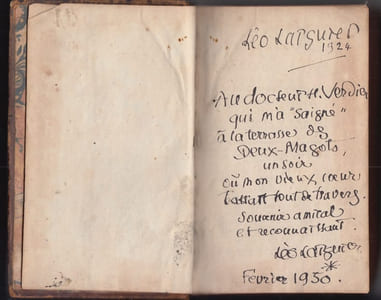 Léo Larguier
1924
Au docteur H. Verdier
qui m'a "saigné"
à la terrasse des
Deux-Magots,
un soir
où mon vieux cœur
battait tout de travers.
Souvenir amical
et reconnaissant.
Léo Larguier
Février 1950.